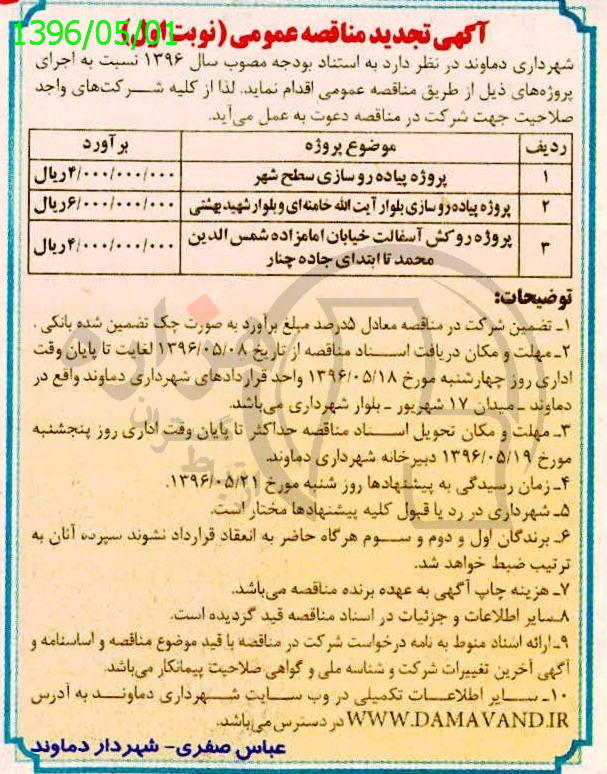 1396/05/01
آگهی تجدید مناقصه عمومی (نوبت اول)
شهرداری دماوند در نظر دارد به استناد بودجه مصوب سال ۱۳۹۶ نسبت به اجرای
پروژه‌های ذیل از طریق مناقصه عمومی اقدام نماید. لذا از کلیه شرکت‌های واجد
صلاحیت جهت شرکت در مناقصه دعوت به عمل می‌آید.
ردیف موضوع پروژه برآورد
۱ پروژه پیاده رو سازی سطح شهر ۴/۰۰۰/۰۰۰/۰۰۰ ریال
۲ پروژه پیاده رو سازی بلوار آیت الله خامنه‌ای و بلوار شهید بهشتی ۶/۰۰۰/۰۰۰/۰۰۰ ریال
۳ پروژه روکش آسفالت خیابان امامزاده شمس الدین ۴/۰۰۰/۰۰۰/۰۰۰ ریال
محمد تا ابتدای جاده چنار
توضیحات:
۱ـ تضمین شرکت در مناقصه معادل ۵درصد مبلغ برآورد به صورت چک تضمین شده بانکی.
۲ـ مهلت و مکان دریافت اسناد مناقصه از تاریخ ۱۳۹۶/۰۵/۰۸ لغایت تا پایان وقت
اداری روز چهارشنبه مورخ ۱۳۹۶/۰۵/۱۸ واحد قراردادهای شهرداری دماوند واقع در
دماوند ـ میدان ۱۷ شهریور ـ بلوار شهرداری می‌باشد.
۳ـ مهلت و مکان تحویل اسناد مناقصه حداکثر تا پایان وقت اداری روز پنجشنبه
مورخ ۱۳۹۶/۰۵/۱۹ دبیرخانه شهرداری دماوند.
۴ـ زمان رسیدگی به پیشنهادها روز شنبه مورخ ۱۳۹۶/۰۵/۲۱.
۵ـ شهرداری در رد یا قبول کلیه پیشنهادها مختار است.
۶ـ برندگان اول و دوم و سوم هرگاه حاضر به انعقاد قرارداد نشوند سپرده آنان به
ترتیب ضبط خواهد شد.
۷ـ هزینه چاپ آگهی به عهده برنده مناقصه می‌باشد.
۸ـ سایر اطلاعات و جزئیات در اسناد مناقصه قید گردیده است.
۹ـ ارائه اسناد منوط به نامه درخواست شرکت در مناقصه با قید موضوع مناقصه و اساسنامه و
آگهی آخرین تغییرات شرکت و شناسه ملی و گواهی صلاحیت پیمانکار می‌باشد.
۱۰ـ سایر اطلاعات تکمیلی در وب سایت شهرداری دماوند به آدرس
WWW.DAMAVAND.IR در دسترس می‌باشد.
عباس صفری- شهردار دماوند